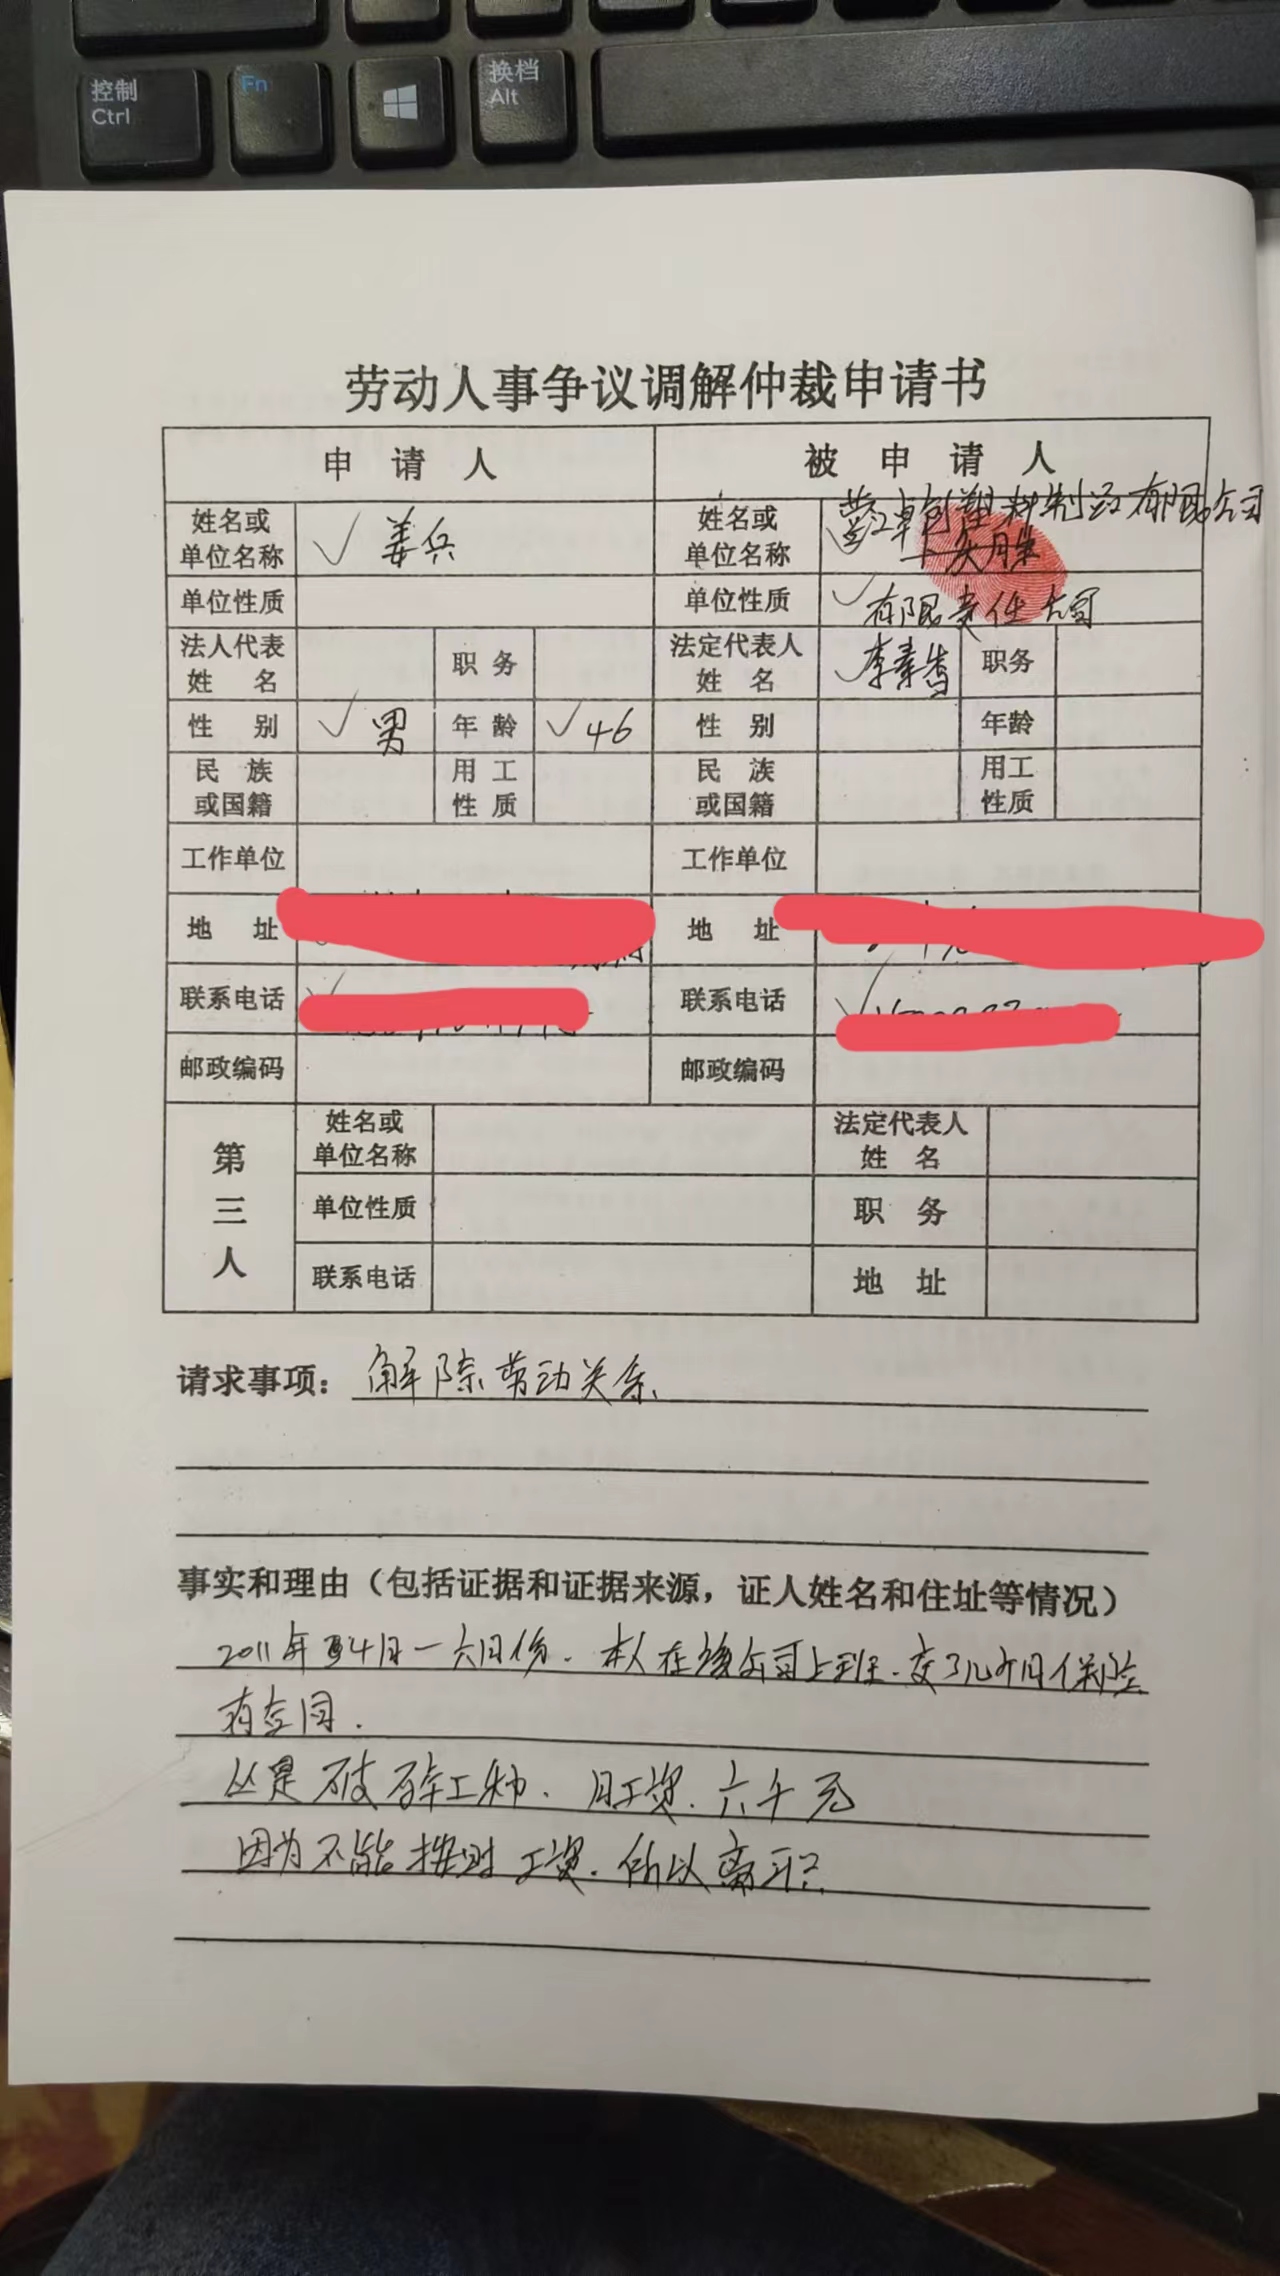 控制
Ctrl
Fn
换档
Alt
劳动人事争议调解仲裁申请书
申请人 被申请人
姓名或单位名称 姜兵 姓名或单位名称 卓创塑料制品有限公司
单位性质 单位性质 有限责任公司
法人代表姓名 职务 法定代表人姓名 李素 职务
性别 男 年龄 46 性别 年龄
民族或国籍 用工性质 民族或国籍 用工性质
工作单位 工作单位
地址 地址
联系电话 联系电话
邮政编码 邮政编码
第三人
姓名或单位名称 法定代表人姓名
单位性质 职务
联系电话 地址
请求事项：解除劳动关系
事实和理由（包括证据和证据来源，证人姓名和住址等情况）
2011年 4月一六月份．本人在该公司上班．交了几个月保险
有合同．
从是破碎工种．月工资．六千元
因为不能按时工资．所以离职